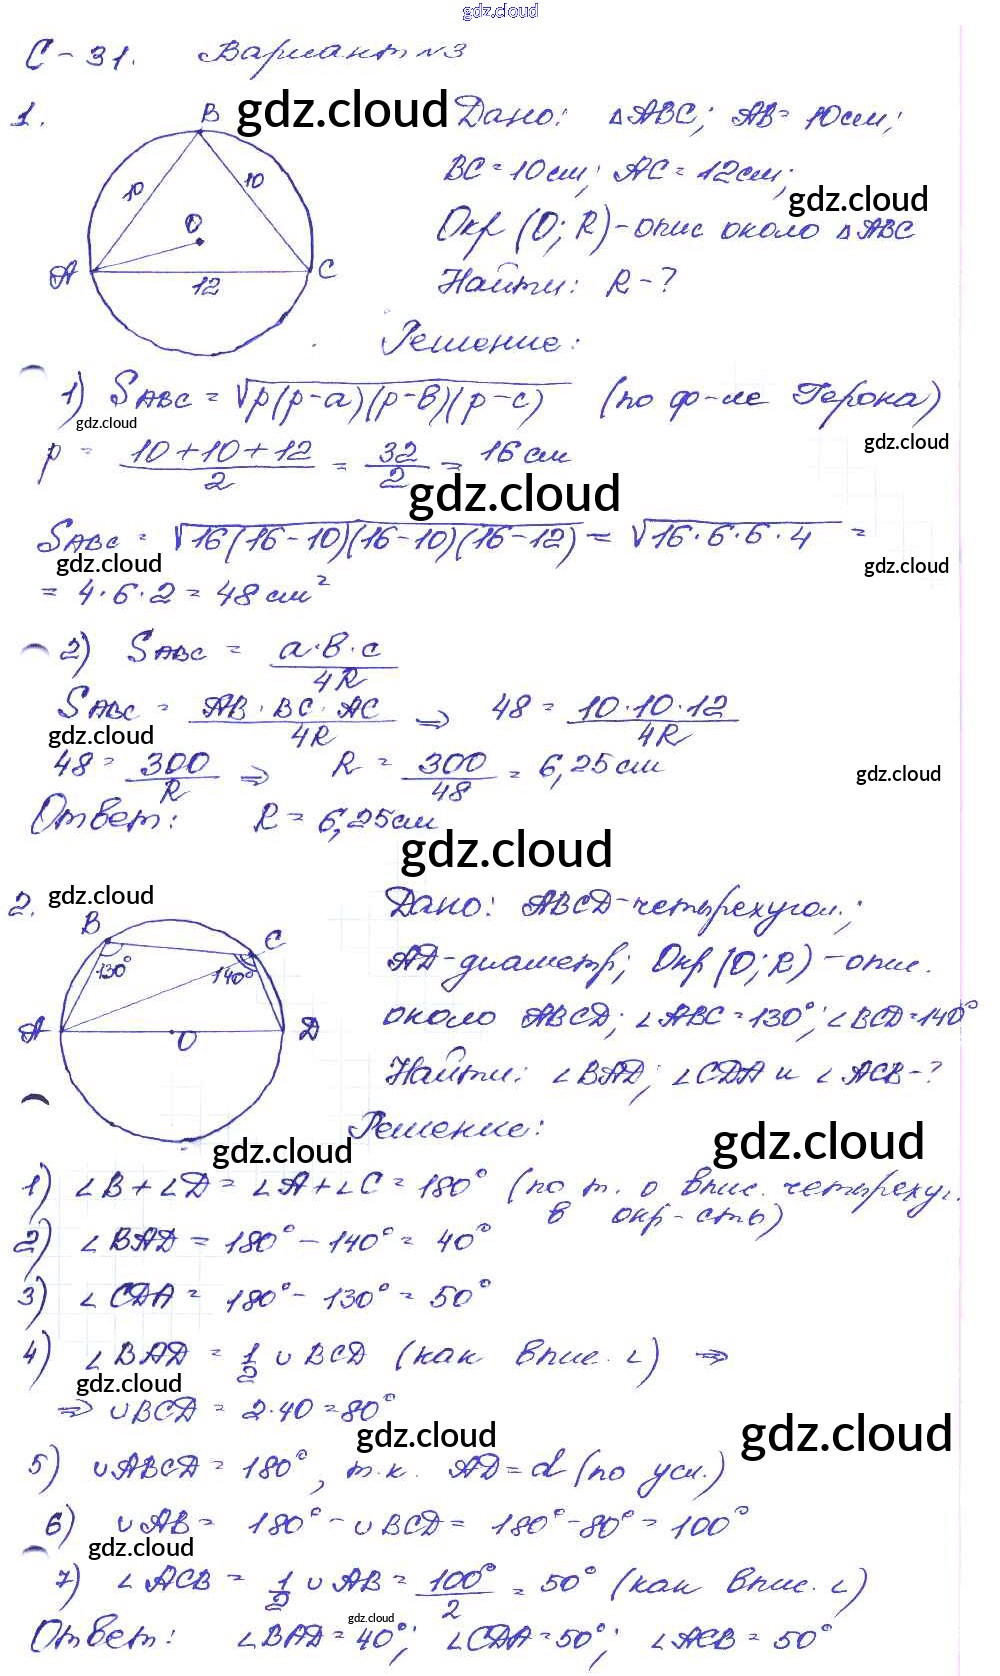 gdz.cloud
С-31. Вариант №3
1.
B
10
10
O
A
C
12
gdz.cloud
Дано: △ABC; AB = 10см;
BC = 10см; AC = 12см;
gdz.cloud
Окр (O; R) - опис около △ABC
Найти: R - ?
Решение:
1) S ABC = √p(p-a)(p-в)(p-c) (по ф-ле Герона)
gdz.cloud
gdz.cloud
p = 10+10+12/2 = 32/2 = 16 см
gdz.cloud
S ABC = √16(16-10)(16-10)(16-12) = √16·6·6·4 =
gdz.cloud
gdz.cloud
= 4·6·2 = 48 см²
2) S ABC = a·в·c/4R
S ABC = AB·BC·AC/4R ⇒ 48 = 10·10·12/4R
gdz.cloud
48 = 300/R ⇒ R = 300/48 = 6,25 см
gdz.cloud
Ответ: R = 6,25см
gdz.cloud
2.
gdz.cloud
B
C
130°
140°
A
O
D
Дано: ABCD - четырехугол.;
AD - диаметр; Окр (O; R) - опис.
около ABCD; ∠ABC = 130°; ∠BCD = 140°
Найти: ∠BAD; ∠CDA и ∠ACB - ?
Решение:
gdz.cloud
gdz.cloud
1) ∠B + ∠D = ∠A + ∠C = 180° (по т. о впис. четырехуг.
в окр-сть)
2) ∠BAD = 180° - 140° = 40°
3) ∠CDA = 180° - 130° = 50°
4) ∠BAD = 1/2 ∪BCD (как впис. ∠) ⇒
gdz.cloud
⇒ ∪BCD = 2·40 = 80°
gdz.cloud
gdz.cloud
5) ∪ABCD = 180°, т.к. AD = d (по усл.)
6) ∪AB = 180° - ∪BCD = 180° - 80° = 100°
gdz.cloud
7) ∠ACB = 1/2 ∪AB = 100°/2 = 50° (как впис. ∠)
gdz.cloud
Ответ: ∠BAD = 40°; ∠CDA = 50°; ∠ACB = 50°